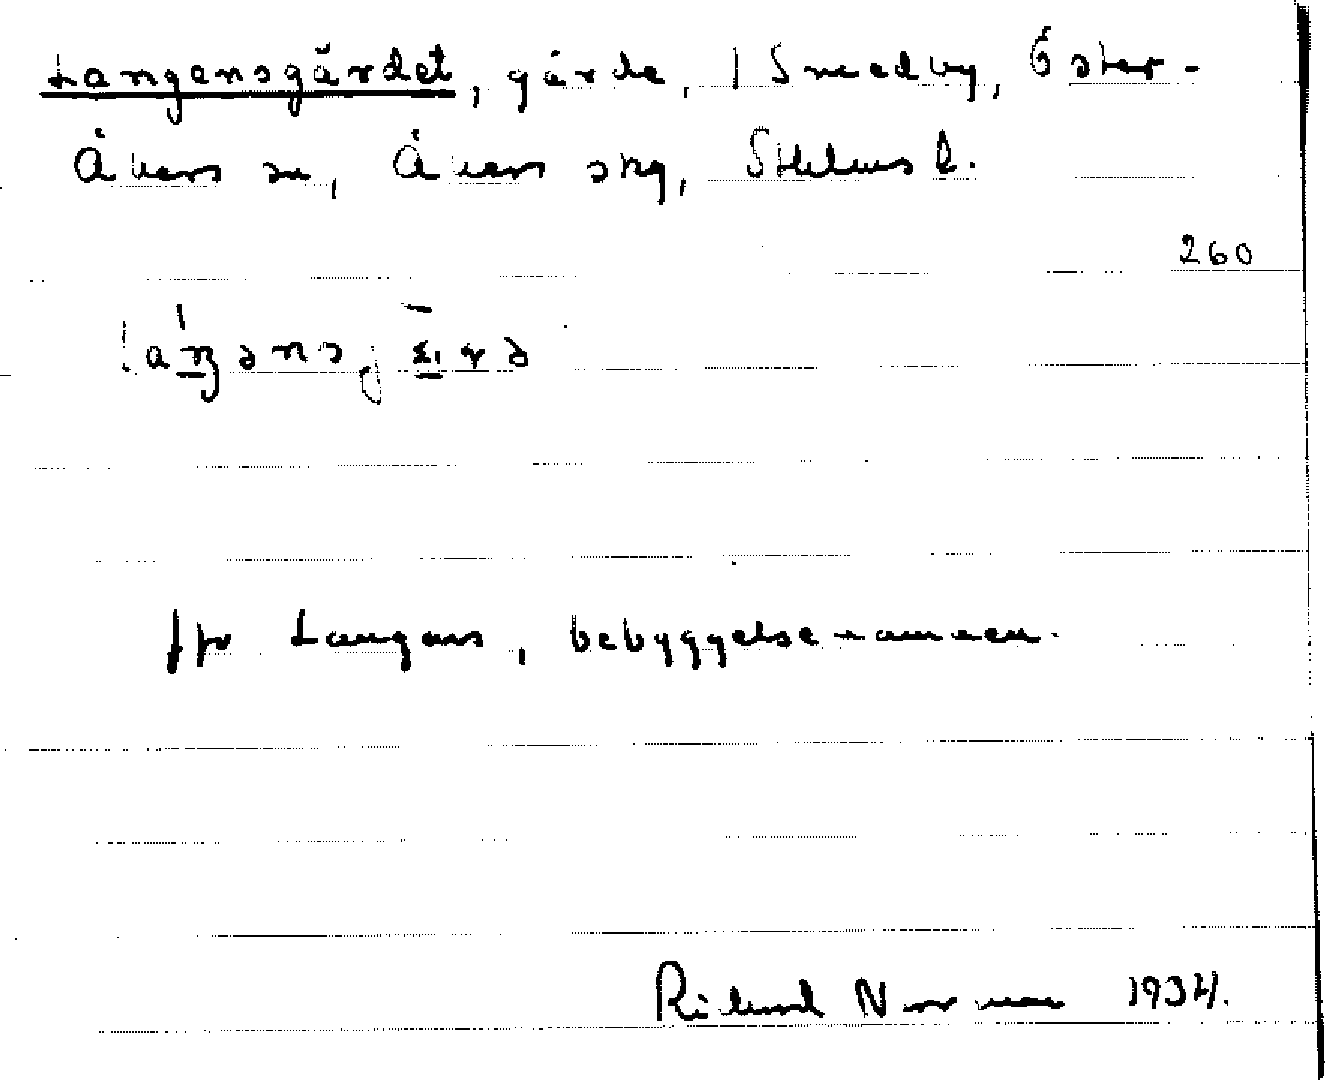 Langensgärdet, gärde, i Smedby, Öster-
Åkers sn, Åkers skg, Sthlms l.
260
fgr Langens, bebyggelsenamnen.
Rikard Norman 1934.